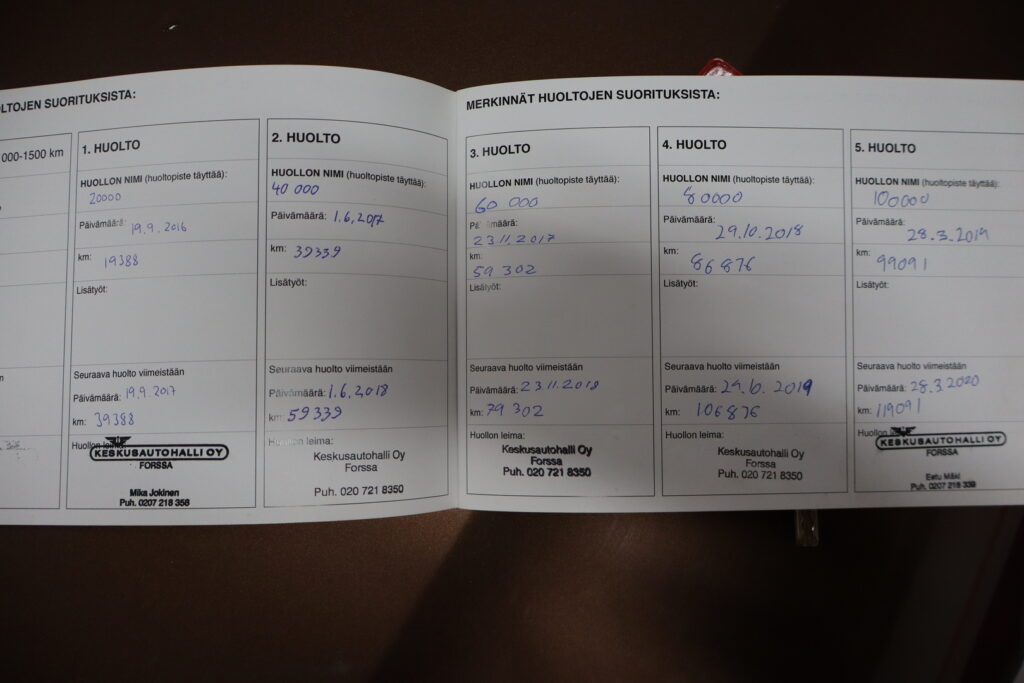 LTOJEN SUORITUKSISTA:
000-1500 km
1. HUOLTO
HUOLLON NIMI (huoltopiste täyttää):
20000
Päivämäärä: 19.9.2016
km: 19388
Lisätyöt:
Seuraava huolto viimeistään
Päivämäärä: 19.9.2017
km: 39388
Huollon leima:
KESKUSAUTOHALLI OY
FORSSA
Mika Jokinen
Puh. 0207 218 356
2. HUOLTO
HUOLLON NIMI (huoltopiste täyttää):
40 000
Päivämäärä: 1.6.2017
km: 39339
Lisätyöt:
Seuraava huolto viimeistään
Päivämäärä: 1.6.2018
km: 59339
Huollon leima:
Keskusautohalli Oy
Forssa
Puh. 020 721 8350
MERKINNÄT HUOLTOJEN SUORITUKSISTA:
3. HUOLTO
HUOLLON NIMI (huoltopiste täyttää):
60 000
Päivämäärä:
23.11.2017
km:
59 302
Lisätyöt:
Seuraava huolto viimeistään
Päivämäärä: 23.11.2018
km: 79 302
Huollon leima:
Keskusautohalli Oy
Forssa
Puh. 020 721 8350
4. HUOLTO
HUOLLON NIMI (huoltopiste täyttää):
80000
Päivämäärä:
29.10.2018
km:
86876
Lisätyöt:
Seuraava huolto viimeistään
Päivämäärä: 2019
km: 106876
Huollon leima:
Keskusautohalli Oy
Forssa
Puh. 020 721 8350
5. HUOLTO
HUOLLON NIMI (huoltopiste täyttää):
100000
Päivämäärä:
28.3.2019
km:
99091
Lisätyöt:
Seuraava huolto viimeistään
Päivämäärä: 28.3.2020
km: 119091
Huollon
KESKUSAUTOHALLI OY
FORSSA
Eetu Mäki
Puh. 0207 218 339